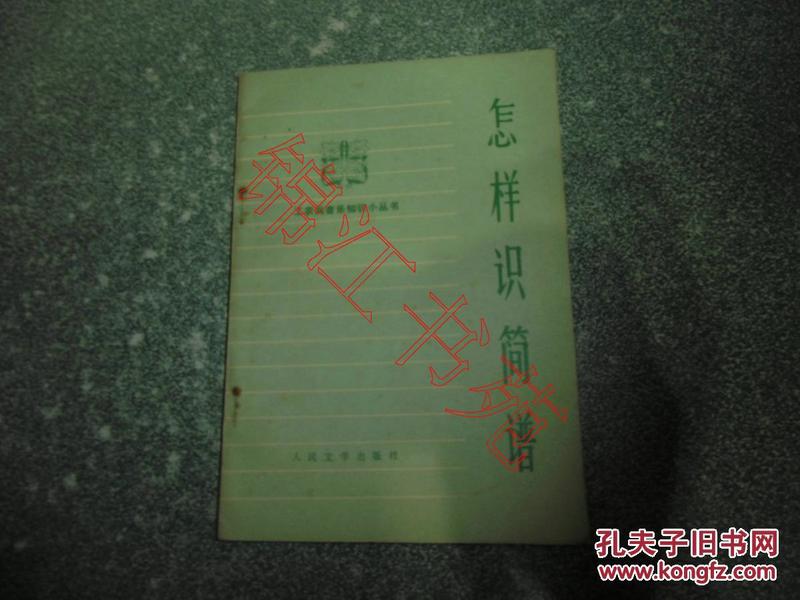 怎样识简谱
工农兵音乐知识小丛书
人民文学出版社
锦江书苑
孔夫子旧书网
www.kongfz.com